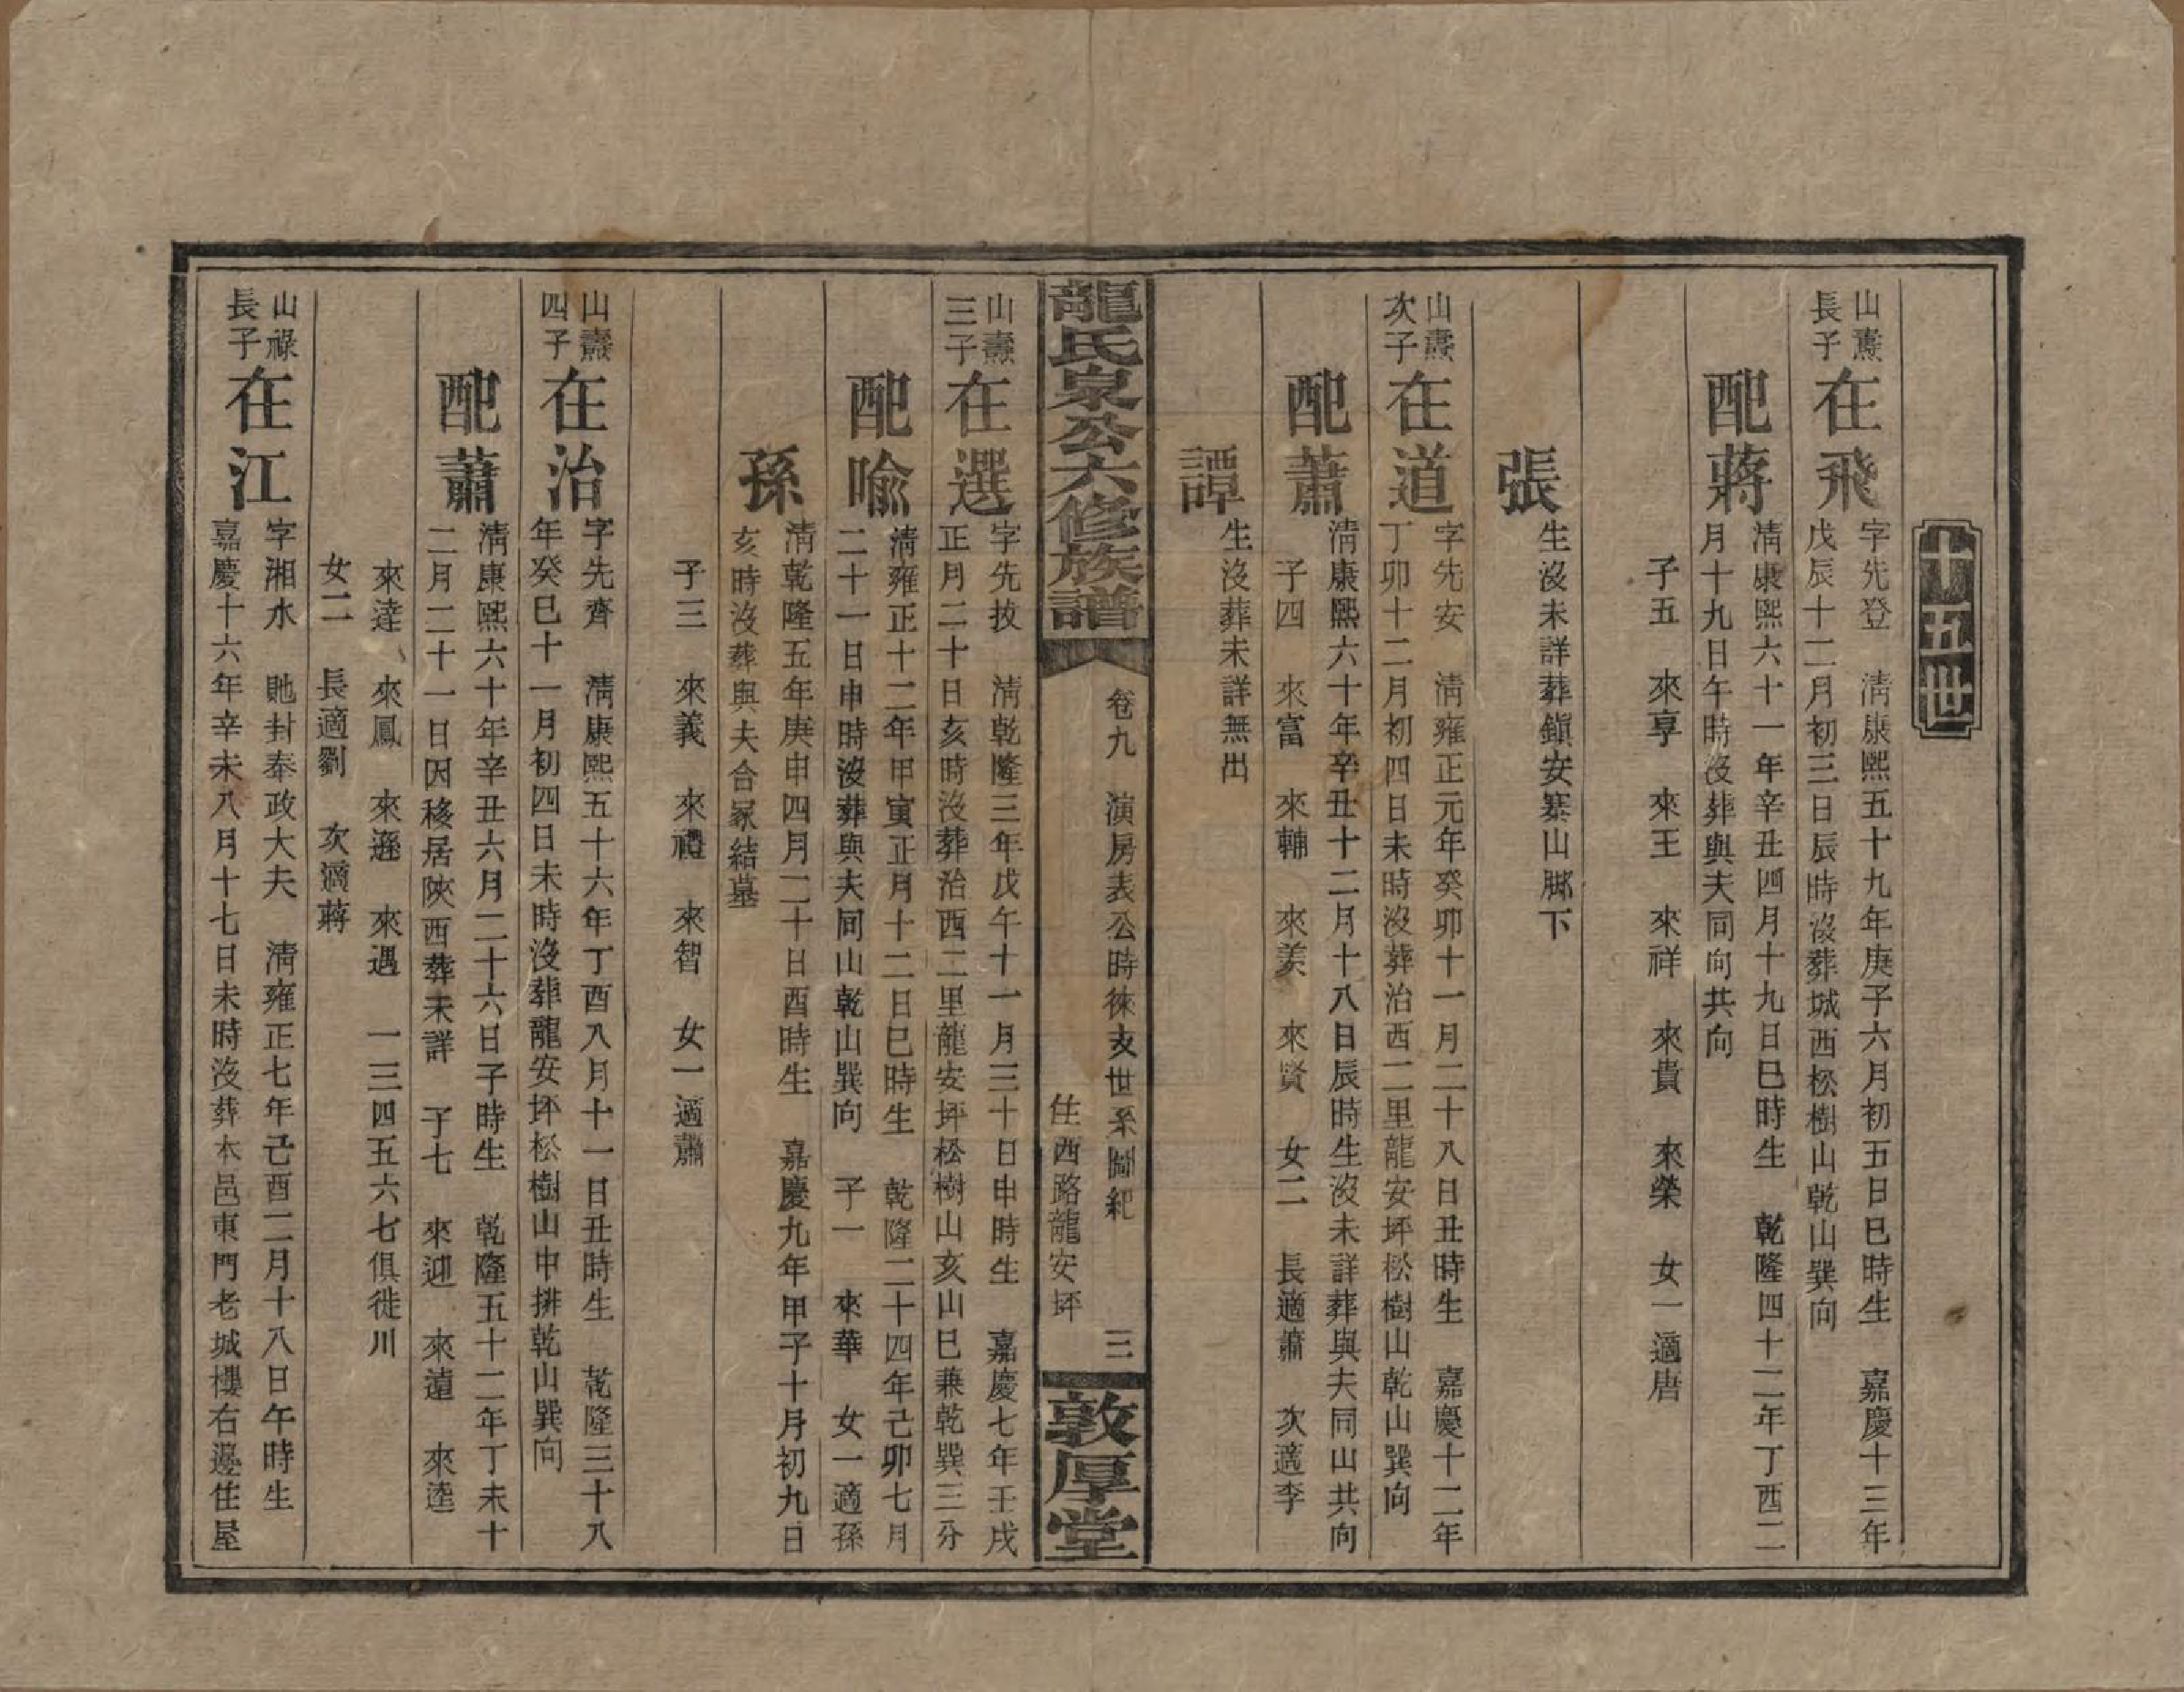 十五世
山燾
長子
在飛
字先登　清康熙五十九年庚子六月初五日巳時生　嘉慶十三年
戊辰十二月初三日辰時沒葬城西松樹山乾山巽向
配蔣
清康熙六十一年辛丑四月十九日巳時生　乾隆四十二年丁酉二
月十九日午時沒葬與夫同向共向
子五　來享　來王　來祥　來貴　來榮　女一適唐
張
生沒未詳葬鎭安寨山脚下
山燾
次子
在道
字先安　清雍正元年癸卯十一月二十八日丑時生　嘉慶十二年
丁卯十二月初四日未時沒葬治西二里龍安坪松樹山乾山巽向
配蕭
清康熙六十年辛丑十二月十八日辰時生沒未詳葬與夫同山共向
子四　來富　來輔　來美　來賢　女二　長適蕭　次適李
譚
生沒葬未詳無出
龍氏泉公六修族譜
卷九　演房表公時徠支世系圖紀　三
住西路龍安坪
敦厚堂
山燾
三子
在選
字先技　清乾隆三年戊午十一月三十日申時生　嘉慶七年壬戌
正月二十日亥時沒葬治西二里龍安坪松樹山亥山巳兼乾巽三分
配喩
清雍正十二年甲寅正月十二日巳時生　乾隆二十四年己卯七月
二十一日申時沒葬與夫同山乾山巽向　子一　來華　女一適孫
孫
清乾隆五年庚申四月二十日酉時生　嘉慶九年甲子十月初九日
亥時沒葬與夫合冢結墓
子三　來義　來禮　來智　女一適蕭
山燾
四子
在治
字先齊　清康熙五十六年丁酉八月十一日丑時生　乾隆三十八
年癸巳十一月初四日未時沒葬龍安坪松樹山申拼乾山巽向
配蕭
清康熙六十年辛丑六月二十六日子時生　乾隆五十二年丁未十
二月二十一日因移居陝西葬未詳　子七　來迎　來遠　來逵
來達　來鳳　來遜　來遇　一三四五六七俱徙川
女二　長適劉　次適蔣
山祿
長子
在江
字湘水　貤封奉政大夫　清雍正七年己酉二月十八日午時生
嘉慶十六年辛未八月十七日未時沒葬本邑東門老城樓右邊住屋